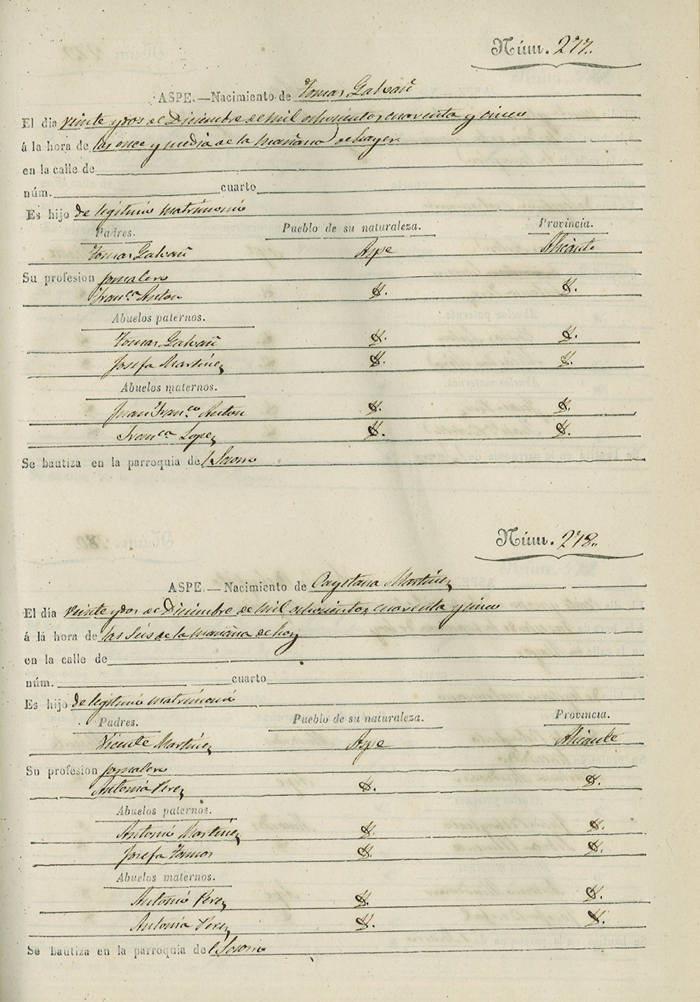 Núm. 277.
ASPE.—Nacimiento de Tomas Galvañ
El dia veinte y dos de Diciembre de mil ochocientos cuarenta y cinco
á la hora de las once y media de la mañana de hayer
en la calle de
núm. cuarto
Es hijo de legitimo matrimonio
Padres. Pueblo de su naturaleza. Provincia.
Tomas Galvañ Aspe Alicante
Su profesion jornalero
Franca Anton Y. Y.
Abuelos paternos.
Tomas Galvañ Y. Y.
Josefa Martinez Y. Y.
Abuelos maternos.
Juan Franco Anton Y. Y.
Franca Lopez Y. Y.
Se bautiza en la parroquia del Socorro
Núm. 278.
ASPE.—Nacimiento de Cayetana Martinez
El dia veinte y dos de Diciembre de mil ochocientos cuarenta y cinco
á lá hora de las seis de la mañana de hoy
en la calle de
núm. cuarto
Es hijo de legitimo matrimonio
Padres. Pueblo de su naturaleza. Provincia.
Vicente Martinez Aspe Alicante
Su profesion jornalero
Antonia Perez Y. Y.
Abuelos paternos.
Antonio Martinez Y. Y.
Josefa Tomas Y. Y.
Abuelos maternos.
Antonio Perez Y. Y.
Antonia Perez Y. Y.
Se bautiza en la parroquia del Socorro